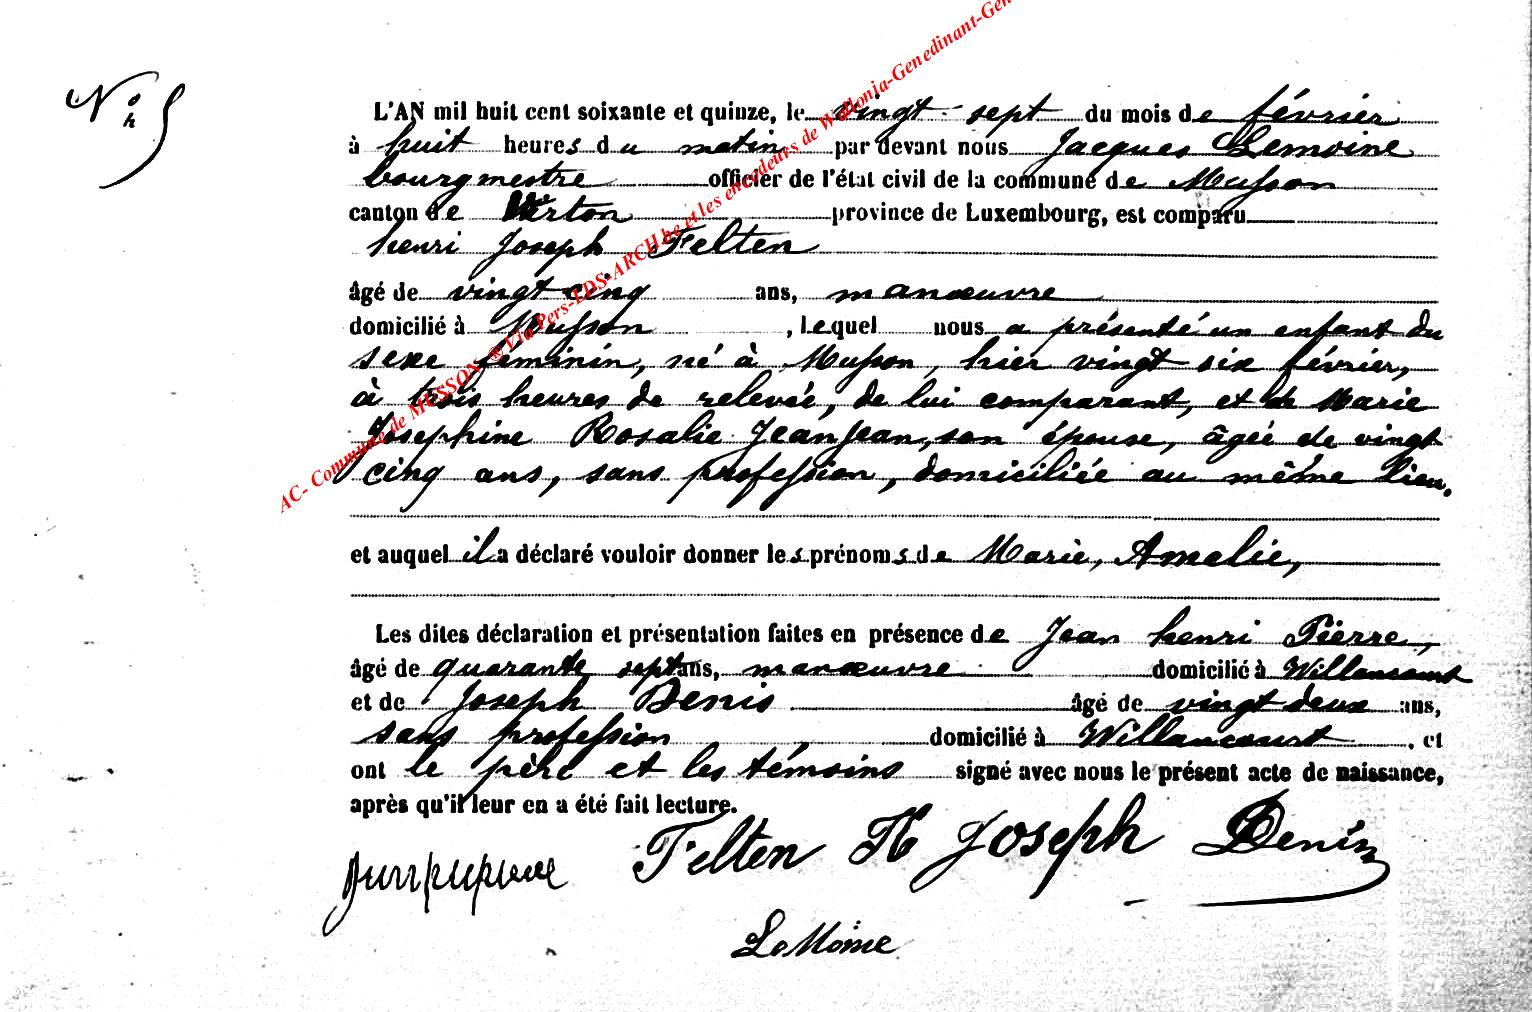 N° 5
L'AN mil huit cent soixante et quinze, le vingt-sept du mois de février
à huit heures du matin par devant nous Jacques Lemoine
bourgmestre officier de l'état civil de la commune de Musson
canton de Virton province de Luxembourg, est comparu
henri Joseph Felten
âgé de vingt cinq ans, manœuvre
domicilié à Musson, lequel nous a présenté un enfant du
sexe féminin, né à Musson, hier vingt six février,
à trois heures de relevée, de lui comparant, et de Marie
Josephine Rosalie Jeanjean, son épouse, âgée de vingt
cinq ans, sans profession, domiciliée au même lieu.
et auquel il a déclaré vouloir donner les prénoms de Marie, Amelie,
Les dites déclaration et présentation faites en présence de Jean henri Pierre,
âgé de quarante sept ans, manœuvre domicilié à Willancourt
et de Joseph Denis âgé de vingt deux ans,
sans profession domicilié à Willancourt, et
ont le père et les témoins signé avec nous le présent acte de naissance,
après qu'il leur en a été fait lecture.
Felten H Joseph Denis
LeMoine
AC- Commune de MUSSON ® Via Pers-LDS-ARCH.be et les encodeurs de Wallonia-Genedinant-Gen